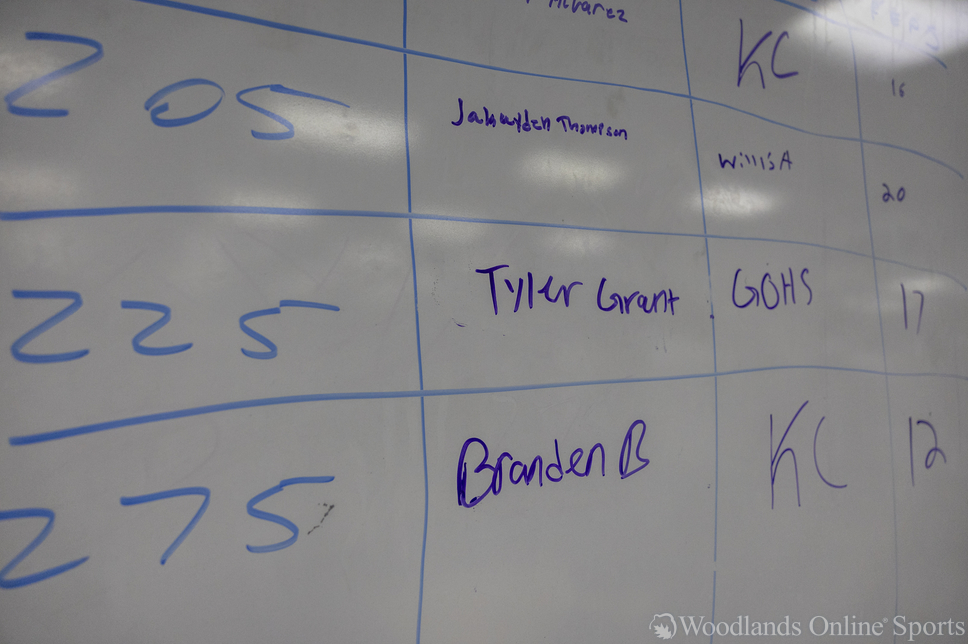 Alvarez KC 16
205 Jakuyden Thompson Willis A 20
225 Tyler Grant GOHS 17
275 Branden B KC 12
Woodlands Online Sports